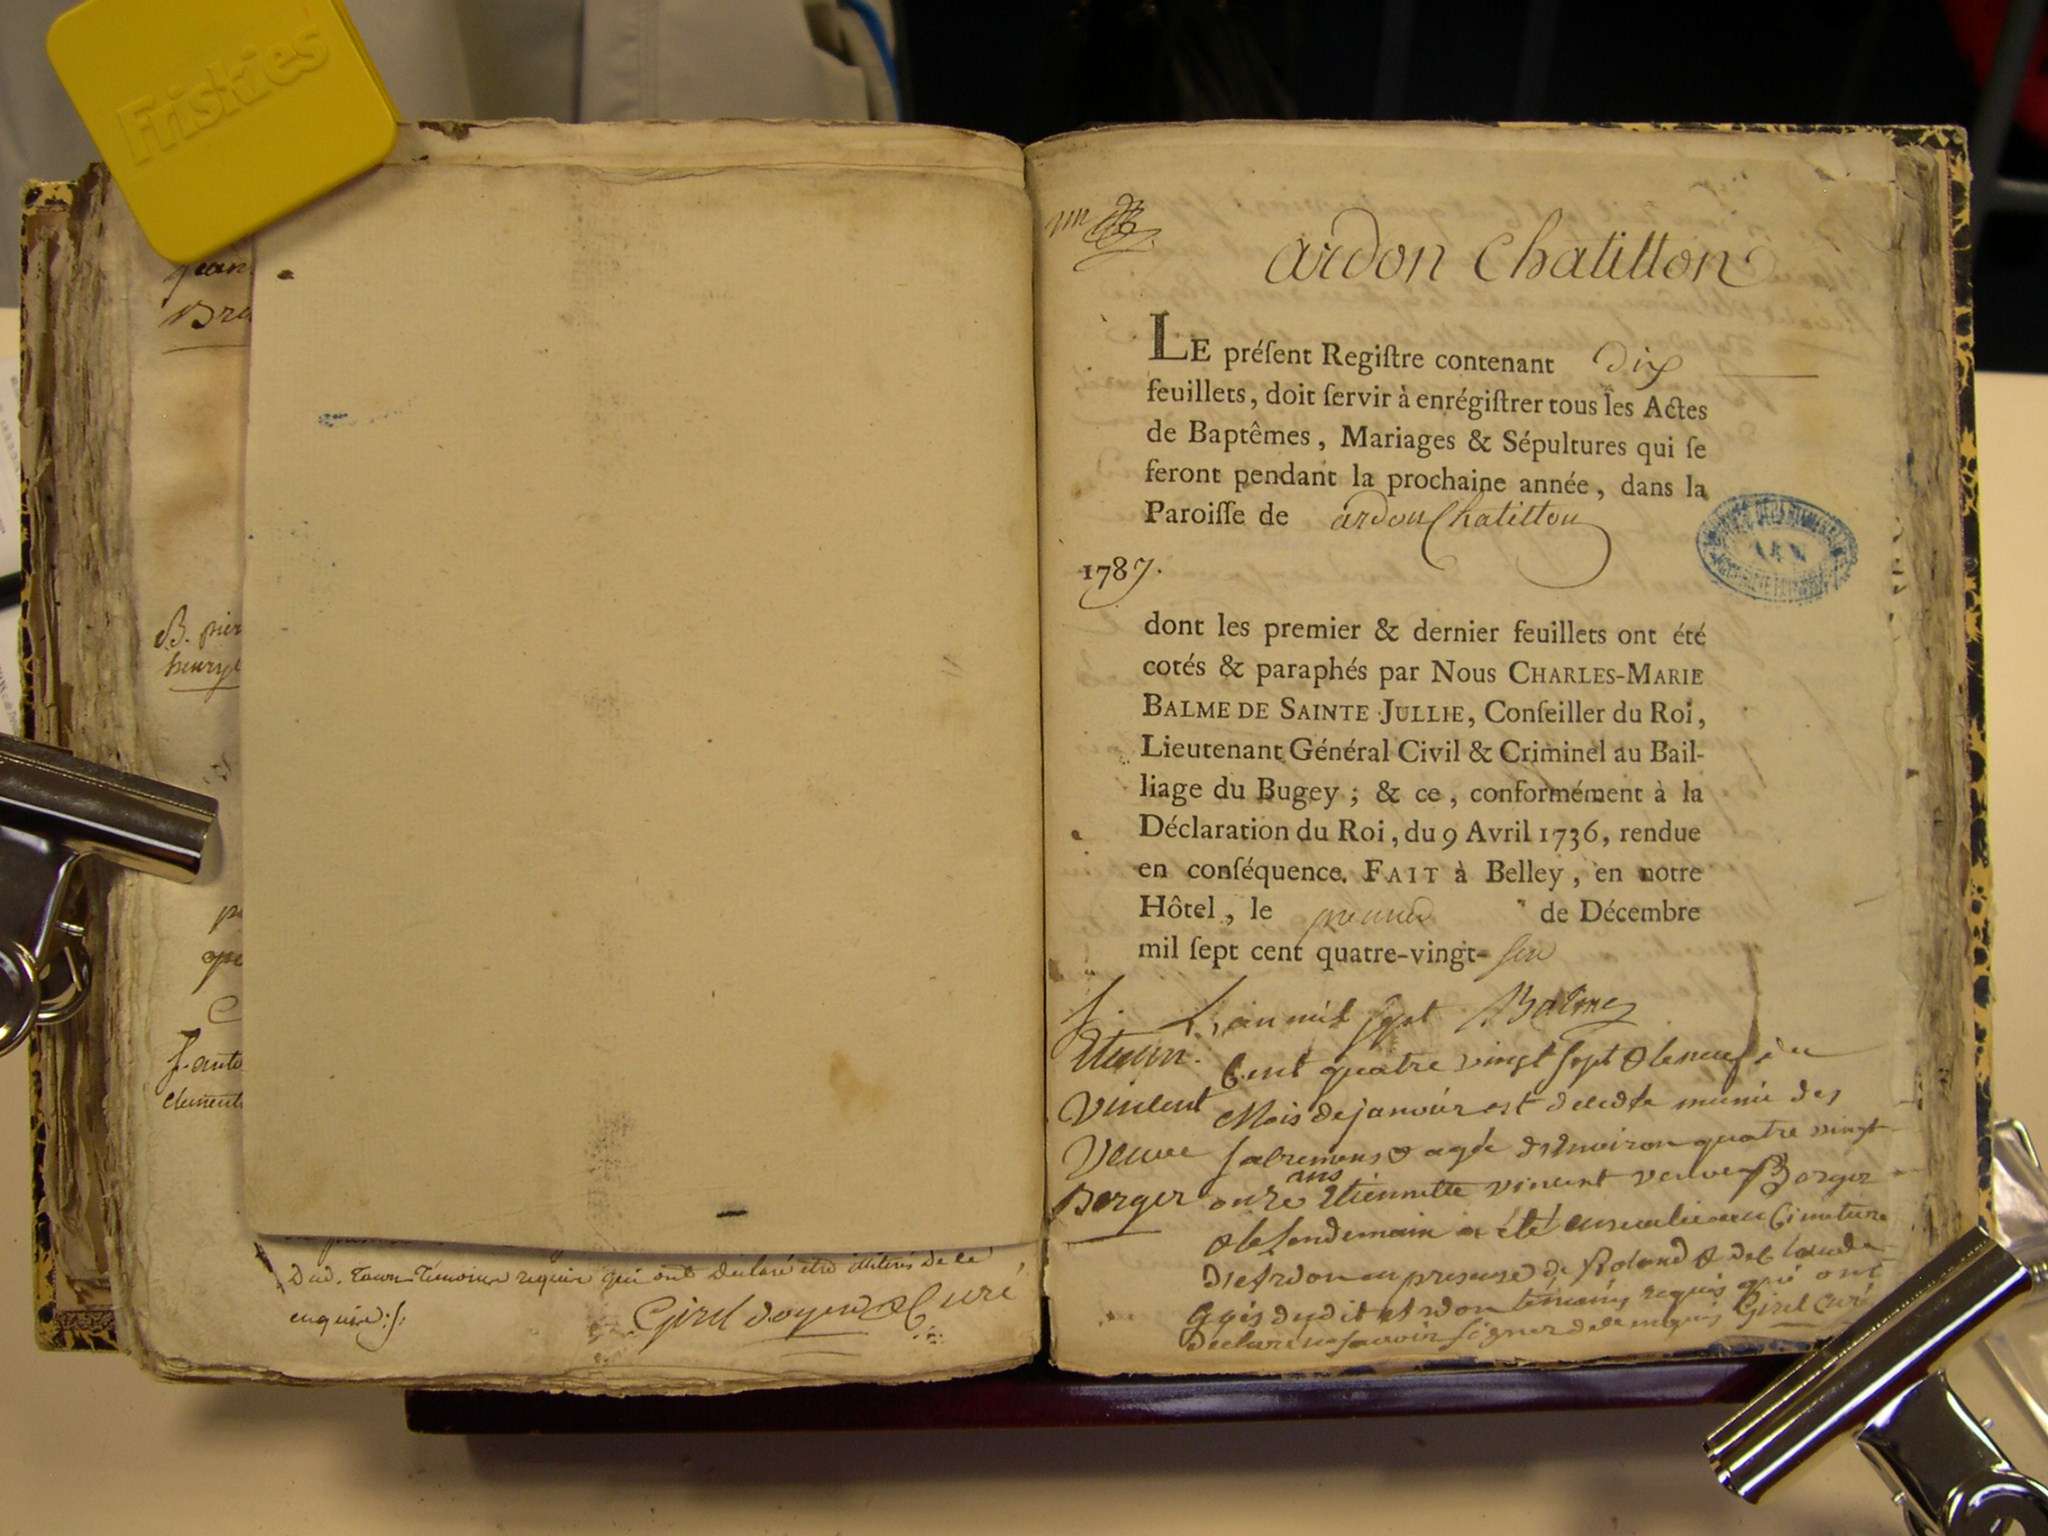 Friskies
Jean
Bra
B. pier
henry
f. anto
clement
dud. témoins requis qui ont déclaré être illitérés de ce
enquis
Girel doyen & Curé
ardon Chatillon
LE préſent Regiſtre contenant dix
feuillets, doit ſervir à enrégiſtrer tous les Actes
de Baptêmes, Mariages & Sépultures qui ſe
feront pendant la prochaine année, dans la
Paroiſſe de ardon Chatillon
1787.
dont les premier & dernier feuillets ont été
cotés & paraphés par Nous CHARLES-MARIE
BALME DE SAINTE JULLIE, Conſeiller du Roi,
Lieutenant Général Civil & Criminel au Bail-
liage du Bugey ; & ce, conformément à la
Déclaration du Roi, du 9 Avril 1736, rendue
en conſéquence. FAIT à Belley, en notre
Hôtel, le premier de Décembre
mil ſept cent quatre-vingt-
Balme
S. L'an mil sept
Cent quatre vingt sept & le neuf du
Vincent Mois de janvier est decedée munie des
Veuve sacremens & agée d'environ quatre vingt
ans
Berger onze Etiennette vincent veuve Berger
& le Lendemain a été ensevelie au Cimetiere
d'ardon en presence de Roland & de Claude
dudit ardon temoins requis qui ont
declaré ne savoir signer de ce enquis Girel Curé